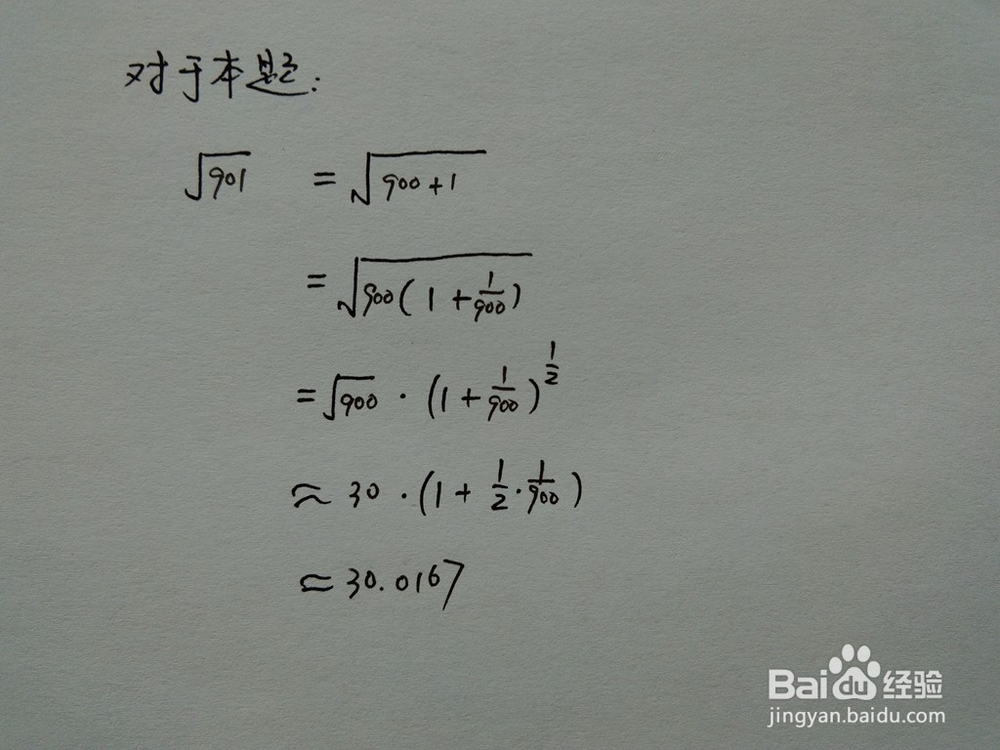 对于本题:
√901 = √(900+1)
= √(900(1+1/900))
= √900 · (1+1/900)^(1/2)
≈ 30 · (1+1/2·1/900)
≈ 30.0167
Baidu经验
jingyan.baidu.com